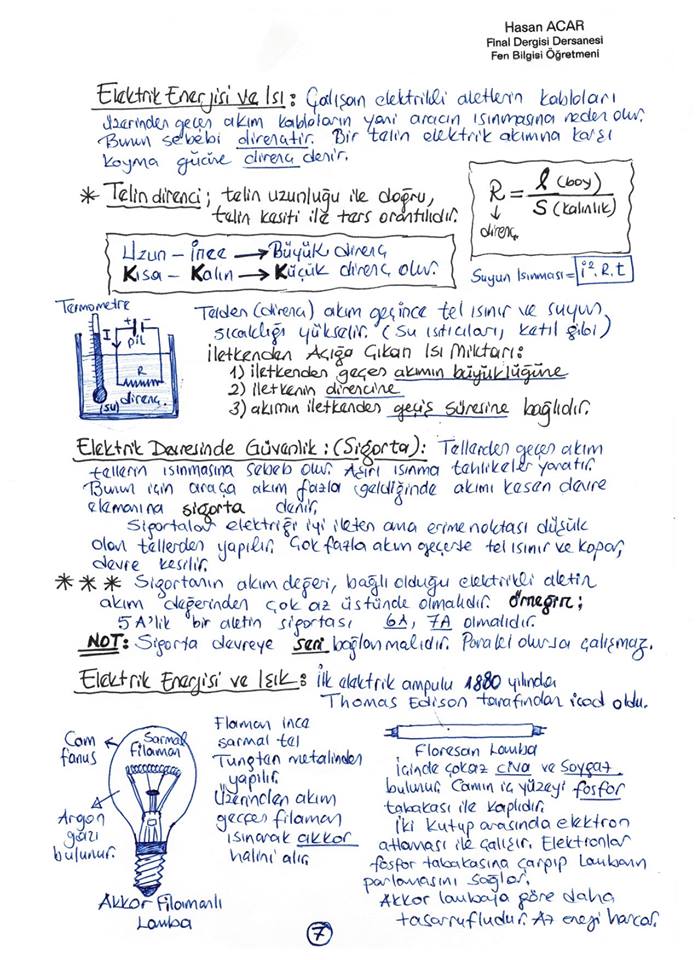 Hasan ACAR
Final Dergisi Dersanesi
Fen Bilgisi Öğretmeni
Elektrik Enerjisi ve Isı: Çalışan elektrikli aletlerin kabloları
üzerinden geçen akım kabloların yani aracın ısınmasına neden olur.
Bunun sebebi dirençtir. Bir telin elektrik akımına karşı
koyma gücüne direnç denir.
* Telin direnci; telin uzunluğu ile doğru,
telin kesiti ile ters orantılıdır.
R = l (boy) / S (kalınlık)
direnç
Uzun - ince → Büyük direnç
Kısa - Kalın → Küçük direnç olur.
Suyun Isınması = i².R.t
Termometre
I
+ -
pil
R
direnç
(su)
Telden (direnci) akım geçince tel ısınır ve suyun
sıcaklığı yükselir. (Su ısıtıcıları, ketıl gibi)
İletkenden Açığa Çıkan Isı Miktarı:
1) iletkenden geçen akımın büyüklüğüne
2) iletkenin direncine
3) akımın iletkenden geçiş süresine bağlıdır.
Elektrik Devresinde Güvenlik: (Sigorta): Tellerden geçen akım
tellerin ısınmasına sebeb olur. Aşırı ısınma tehlikeler yaratır.
Bunun için araça akım fazla geldiğinde akımı kesen devre
elemanına sigorta denir.
Sigortalar elektriği iyi ileten ama erime noktası düşük
olan tellerden yapılır. Çok fazla akım geçerse tel ısınır ve kopar,
devre kesilir.
*** Sigortanın akım değeri, bağlı olduğu elektrikli aletin
akım değerinden çok az üstünde olmalıdır. Örneğin;
5 A'lik bir aletin sigortası 6A, 7A olmalıdır.
NOT: Sigorta devreye seri bağlanmalıdır. Paralel olursa çalışmaz.
Elektrik Enerjisi ve Işık: İlk elektrik ampulu 1880 yılında
Thomas Edison tarafından icad oldu.
Cam
fanus
Sarmal
Filaman
Argon
gazı
bulunur.
Akkor Filamanlı
Lamba
Flaman ince
sarmal tel
Tungten metalinden
yapılır.
Üzerinden akım
geçen filaman
ısınarak akkor
halini alır.
Floresan Lamba
İçinde çok az cıva ve Soygaz
bulunur. Camın iç yüzeyi fosfor
tabakası ile kaplıdır.
İki kutup arasında elektron
atlaması ile çalışır. Elektronlar
fosfor tabakasına çarpıp Lambanın
parlamasını sağlar.
Akkor lambaya göre daha
tasarrufludur. Az enerji harcar.
7